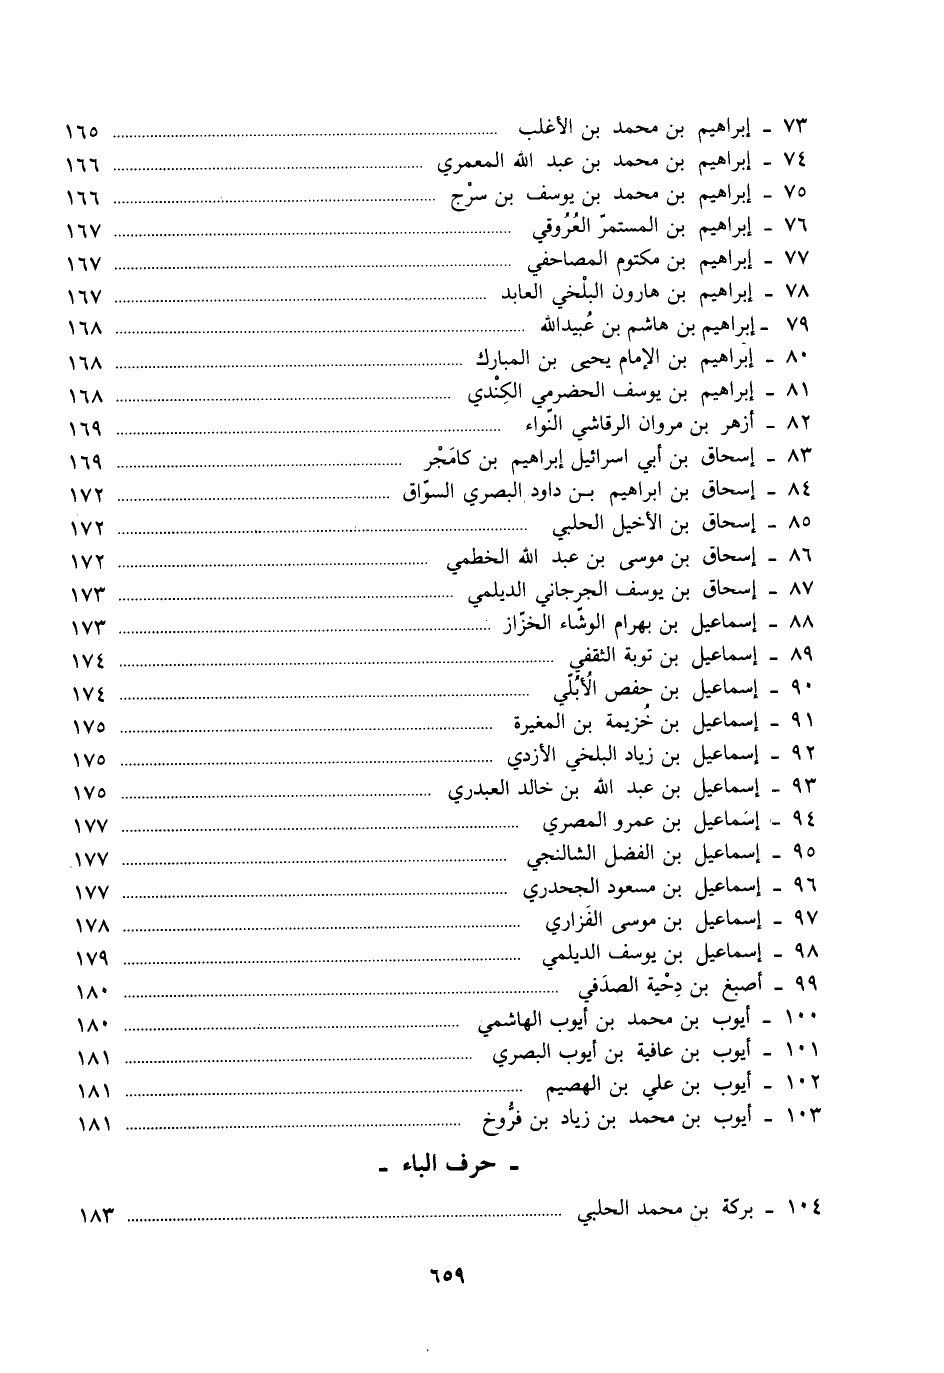 ٧٣ ـ إبراهيم بن محمد بن الأغلب ........ ١٦٥
٧٤ ـ إبراهيم بن محمد بن عبد الله المعمري ........ ١٦٦
٧٥ ـ إبراهيم بن محمد بن يوسف بن سرْج ........ ١٦٦
٧٦ ـ إبراهيم بن المستمرّ العُرُوقي ........ ١٦٧
٧٧ ـ إبراهيم بن مكتوم المصاحفي ........ ١٦٧
٧٨ ـ إبراهيم بن هارون البلْخي العابد ........ ١٦٧
٧٩ ـ إبراهيم بن هاشم بن عُبيدالله ........ ١٦٨
٨٠ ـ إبراهيم بن الإمام يحيى بن المبارك ........ ١٦٨
٨١ ـ إبراهيم بن يوسف الحضرمي الكِنْدي ........ ١٦٨
٨٢ ـ أزهر بن مروان الرقاشي النّواء ........ ١٦٩
٨٣ ـ إسحاق بن أبي اسرائيل إبراهيم بن كامَجْر ........ ١٦٩
٨٤ ـ إسحاق بن ابراهيم بـن داود البصري السوّاق ........ ١٧٢
٨٥ ـ إسحاق بن الأخيل الحلبي ........ ١٧٢
٨٦ ـ إسحاق بن موسى بن عبد الله الخطمي ........ ١٧٢
٨٧ ـ إسحاق بن يوسف الجرجاني الديلمي ........ ١٧٣
٨٨ ـ إسماعيل بن بهرام الوشّاء الخزّاز ........ ١٧٣
٨٩ ـ إسماعيل بن توبة الثقفي ........ ١٧٤
٩٠ ـ إسماعيل بن حفص الُأبُلّي ........ ١٧٤
٩١ ـ إسماعيل بن خُزيمة بن المغيرة ........ ١٧٥
٩٢ ـ إسماعيل بن زياد البلخي الأزدي ........ ١٧٥
٩٣ ـ إسماعيل بن عبد الله بن خالد العبدري ........ ١٧٥
٩٤ ـ إسماعيل بن عمرو المصري ........ ١٧٧
٩٥ ـ إسماعيل بن الفضل الشالنجي ........ ١٧٧
٩٦ ـ إسماعيل بن مسعود الجحدري ........ ١٧٧
٩٧ ـ إسماعيل بن موسى الفَزاري ........ ١٧٨
٩٨ ـ إسماعيل بن يوسف الديلمي ........ ١٧٩
٩٩ ـ أصبغ بن دِحْية الصدَفي ........ ١٨٠
١٠٠ ـ أيوب بن محمد بن أيوب الهاشمي ........ ١٨٠
١٠١ ـ أيوب بن عافية بن أيوب البصري ........ ١٨١
١٠٢ ـ أيوب بن علي بن الهصيم ........ ١٨١
١٠٣ ـ أيوب بن محمد بن زياد بن فرُّوخ ........ ١٨١
ـ حرف الباء ـ
١٠٤ ـ بركة بن محمد الحلبي ........ ١٨٣
٦٥٩